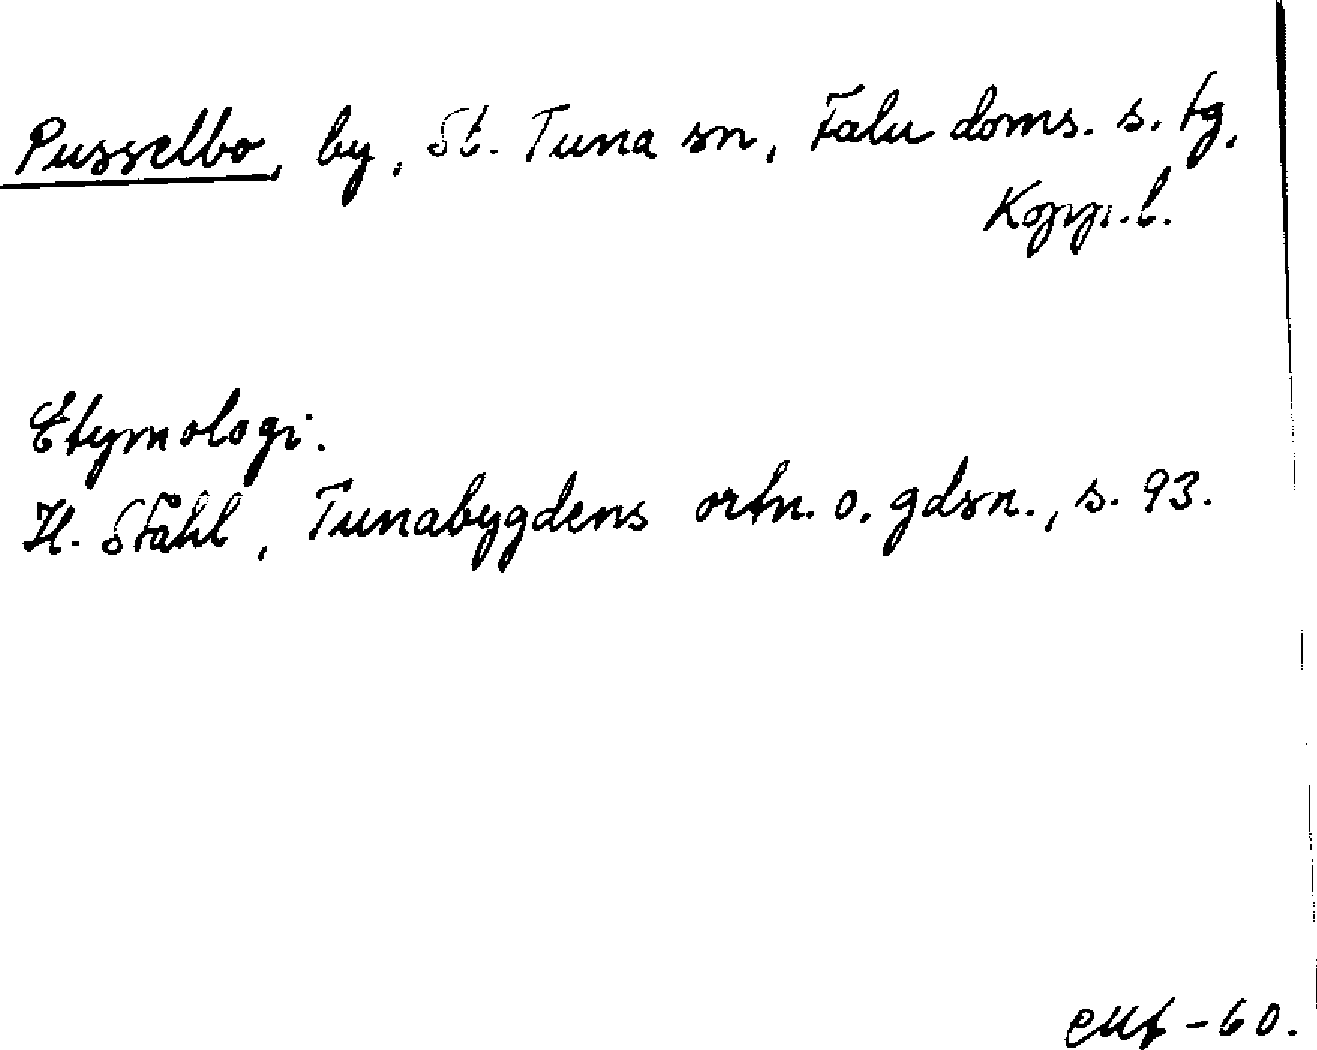 Pusselbo, by, St. Tuna sn, Falu doms. s. tg,
Kopp. l.
Etymologi.
H. Ståhl, Tunabygdens ortn. o. gdsn., s. 93.
-60.